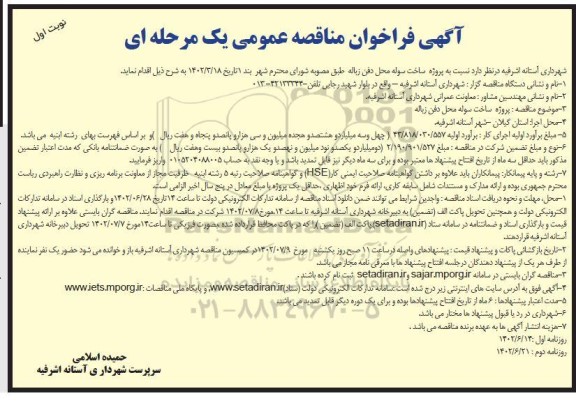 نوبت اول
آگهی فراخوان مناقصه عمومی یک مرحله ای
شهرداری آستانه اشرفیه درنظر دارد نسبت به پروژه ساخت سوله محل دفن زباله طبق مصوبه شورای محترم شهر بند ۱تاریخ ۱۴۰۲/۳/۱۸ به شرح ذیل اقدام نماید.
۱-نام و نشانی دستگاه مناقصه گزار : شهرداری آستانه اشرفیه – واقع در بلوار شهید رجایی تلفن-۴۲۱۳۳۳۴۴-۰۱۳
۲-نام و نشانی مهندسین مشاور : معاونت عمرانی شهرداری آستانه اشرفیه.
۳-موضوع مناقصه : پروژه ساخت سوله محل دفن زباله
۴-محل اجرا: استان گیلان –شهر آستانه اشرفیه.
۵-مبلغ برآورد اولیه اجرای کار : برآورد اولیه ۴۳/۸۱۸/۰۲۰/۵۵۷ ( چهل وسه میلیاردو هشتصدو هجده میلیون و سی هزارو پانصدو پنجاه و هفت ریال ) و بر اساس فهرست بهای رشته ابنیه می باشد.
۶-نوع و مبلغ تضمین شرکت در مناقصه : مبلغ ۲/۱۹۰/۹۰۱/۵۲۷ (دومیلیاردو یکصدو نود میلیون و نهصدو یک هزارو پانصدو بیست وهفت ریال ) به صورت ضمانتنامه بانکی که مدت اعتبار تضمین
مذکور باید حداقل سه ماه از تاریخ افتتاح پیشنهاد ها معتبر بوده و برای سه ماه دیگر نیز قابل تمدید باشد و یا وجه نقد به حساب ۰۱۰۵۲۰۴۰۸۸۰۰۵ واریز فرمایید.
۷-رشته و پایه پیمانکار: پیمانکاران باید علاوه بر داشتن گواهینامه صلاحیت ایمنی کار(HSE) و گواهینامه صلاحیت رتبه ۵ رشته ابنیه، ظرفیت مجاز از معاونت برنامه ریزی و نظارت راهبردی ریاست
محترم جمهوری بوده و ارائه مدارک و مستندات شامل سابقه کاری، ارائه فرم خود اظهاری ،حداقل یک پروژه با مبلغ معادل در پنج سال اخیر الزامی است.
۱-محل، مهلت و نحوه دریافت اسناد مناقصه : واجدین شرایط می توانند ضمن دانلود اسناد مناقصه از سامانه تدارکات الکترونیکی دولت تا ساعت ۱۴تاریخ ۱۴۰۲/۰۶/۲۸و بارگذاری اسناد در سامانه تدارکات
الکترونیکی دولت و همچنین تحویل پاکت الف (تضمین) به دبیرخانه شهرداری آستانه اشرفیه تا ساعت ۱۴مورخ ۱۴۰۲/۰۷/۸ شرکت در مناقصه اقدام نمایند. مناقصه گران بایستی علاوه بر ارائه پیشنهاد
قیمت و بارگذاری اسناد و ضمانتنامه در سامانه ستاد (setadiran.ir)پاکت الف (تضمین )را که در پاکت محافظ قرارداده شده بصورت فیزیکی تا ساعت۱۴مورخ ۱۴۰۲/۰۷/۷ تحویل دبیرخانه شهرداری
آستانه اشرفیه قراردهند.
۲-تاریخ بازگشائی پاکات و پیشنهاد قیمت : پیشنهادهای واصله درساعت ۱۱ صبح روز یکشنبه مورخ ۱۴۰۲/۰۷/۹درکمیسیون مناقصه شهرداری آستانه اشرفیه باز و خوانده می شود حضور یک نفر نماینده
از طرف هر یک از پیشنهاد دهندگان درجلسه افتتاح پیشنهاد ها با معرفی نامه مجاز می باشد.
۳-مناقصه گران بایستی در سامانه sajar.mporg.ir و setadiran.ir ثبت نام کرده باشند .
۴-آگهی فوق به آدرس سایت های اینترنتی زیر درج شده است سامانه تدارکات الکترونیکی دولت (ستاد)www.setadiran.ir و پایگاه ملی مناقصات :www.iets.mporg.ir
۵-مدت اعتبار پیشنهادها : ۶ ماه از تاریخ افتتاح پیشنهادها بوده و برای یک دوره دیگر قابل تمدید می باشد.
۶-شهرداری در رد یا قبول پیشنهاد ها مختار می باشد.
۷-هزینه انتشار آگهی ها به عهده برنده مناقصه می باشد .
روزنامه اول :۱۴۰۲/۶/۱۴
روزنامه دوم : ۱۴۰۲/۶/۲۱
حمیده اسلامی
سرپرست شهرداری آستانه اشرفیه
۰۲۱-۸۸۳۴۹۶۷۰-۵